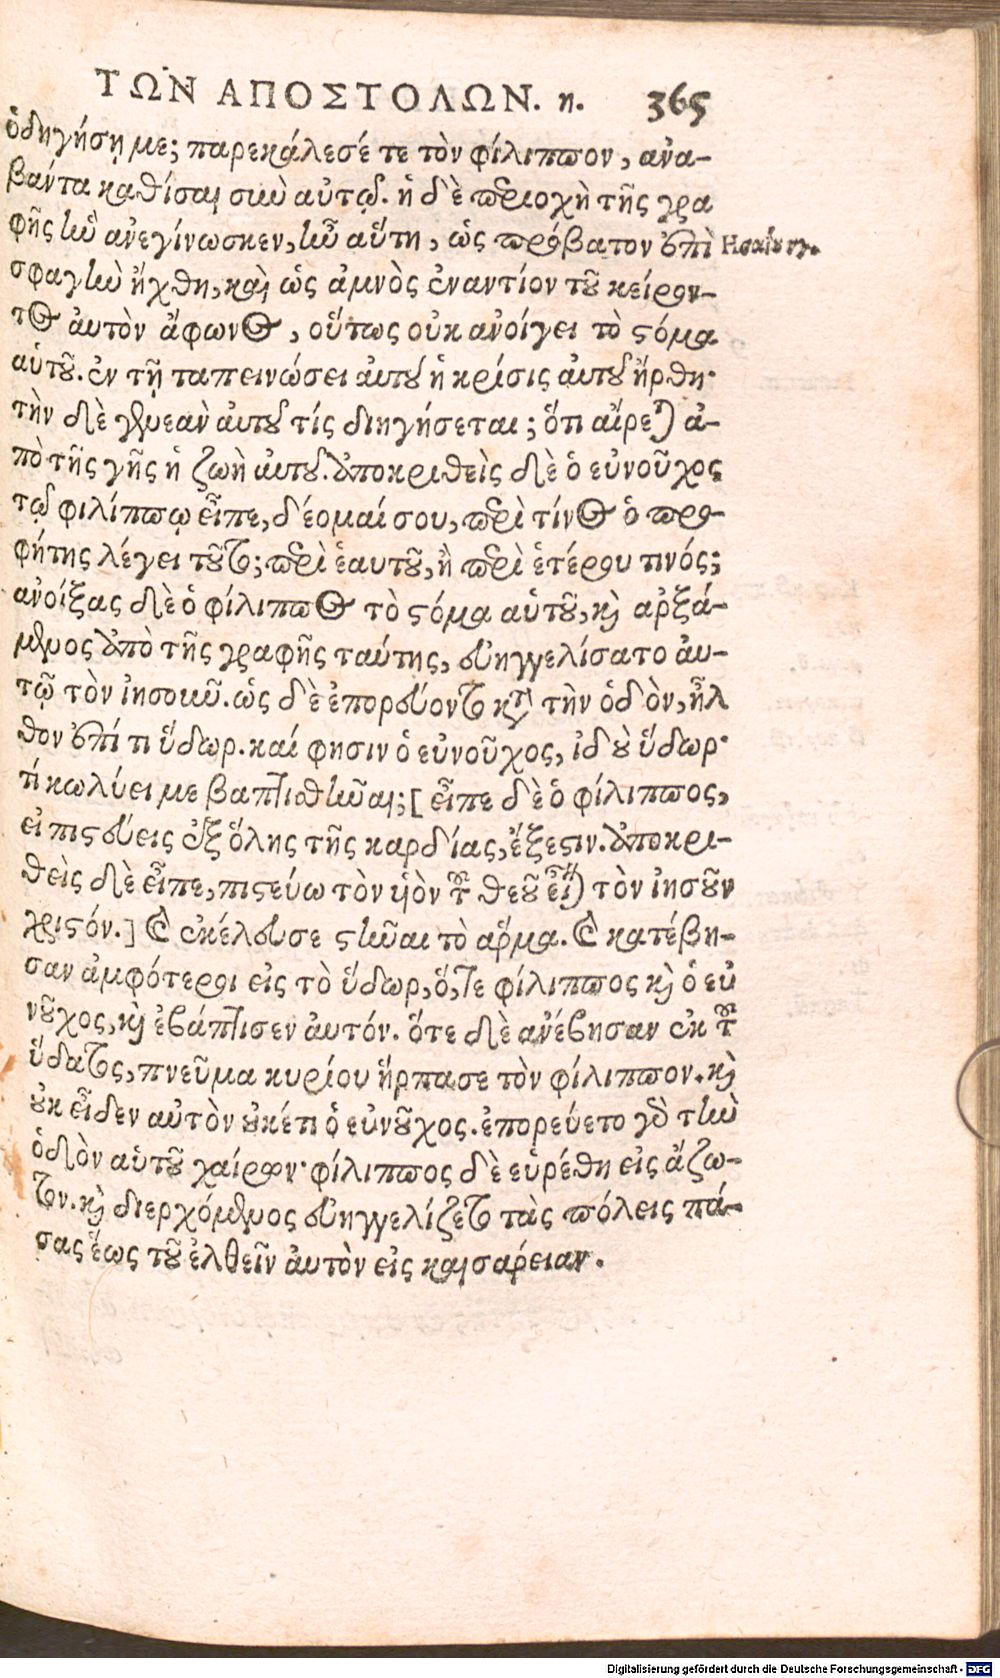 ΤΩΝ ΑΠΟΣΤΟΛΩΝ. η. 365
ὁδηγήσῃ με; παρεκάλεσέ τε τὸν φίλιππον, ἀνα-
βάντα καθίσαι σὺν αὐτῷ. ἡ δ̓ὲ περιοχὴ τῆς γρα
φῆς ἣν ἀνεγίνωσκεν, ἦν αὕτη, ὡς πρόβατον ἐπὶ
σφαγὴν ἤχθη, καὶ ὡς ἀμνὸς ἐναντίον τοῦ κείρον-
τος ἀυτὸν ἄφωνος, οὕτως οὐκ ἀνοίγει τὸ στόμα
αὑτοῦ. ἐν τῇ ταπεινώσει ἀυτοῦ ἡ κρίσις ἀυτοῦ ἤρθη·
τὴν δὲ γενεὰν ἀυτοῦ τίς διηγήσεται; ὅτι αἴρεται ἀ-
πὸ τῆς γῆς ἡ ζωὴ ἀυτοῦ. ἀποκριθεὶς δὲ ὁ εὐνοῦχος
τῷ φιλίππῳ εἶπε, δέομαί σου, περὶ τίνος ὁ προ-
φήτης λέγει τοῦτο; περὶ ἑαυτοῦ, ἢ περὶ ἑτέρου τινός;
ἀνοίξας δὲ ὁ φίλιππος τὸ στόμα αὑτοῦ, καὶ ἀρξά-
μενος ἀπὸ τῆς γραφῆς ταύτης, εὐηγγελίσατο ἀυ-
τῷ τὸν ἰησοῦν. ὡς δὲ ἐπορεύοντο κατὰ τὴν ὁδὸν, ἦλ
θον ἐπί τι ὕδωρ. καί φησιν ὁ εὐνοῦχος, ἰδοὺ ὕδωρ·
τί κωλύει με βαπτισθῆναι; [εἶπε δὲ ὁ φίλιππος,
εἰ πιστεύεις ἐξ ὅλης τῆς καρδίας, ἔξεστιν. ἀποκρι-
θεὶς δὲ εἶπε, πιστεύω τὸν υἱὸν τοῦ θεοῦ εἶναι τὸν ἰησοῦν
χριστόν.] καὶ ἐκέλευσε στῆναι τὸ ἅρμα. καὶ κατέβη-
σαν ἀμφότεροι εἰς τὸ ὕδωρ, ὅ, τε φίλιππος καὶ ὁ εὐ
νοῦχος, καὶ ἐβάπτισεν ἀυτόν. ὅτε δὲ ἀνέβησαν ἐκ τοῦ
ὕδατος, πνεῦμα κυρίου ἥρπασε τὸν φίλιππον. καὶ
οὐκ εἶδεν αὐτὸν οὐκέτι ὁ εὐνοῦχος. ἐπορεύετο γὰρ τὴν
ὁδὸν αὑτοῦ χαίρων· φίλιππος δὲ εὑρέθη εἰς ἄζω-
τον. καὶ διερχόμενος εὐηγγελίζετο τὰς πόλεις πά-
σας ἕως τοῦ ἐλθεῖν ἀυτὸν εἰς καισάρειαν.
Digitalisierung gefördert durch die Deutsche Forschungsgemeinschaft - DFG